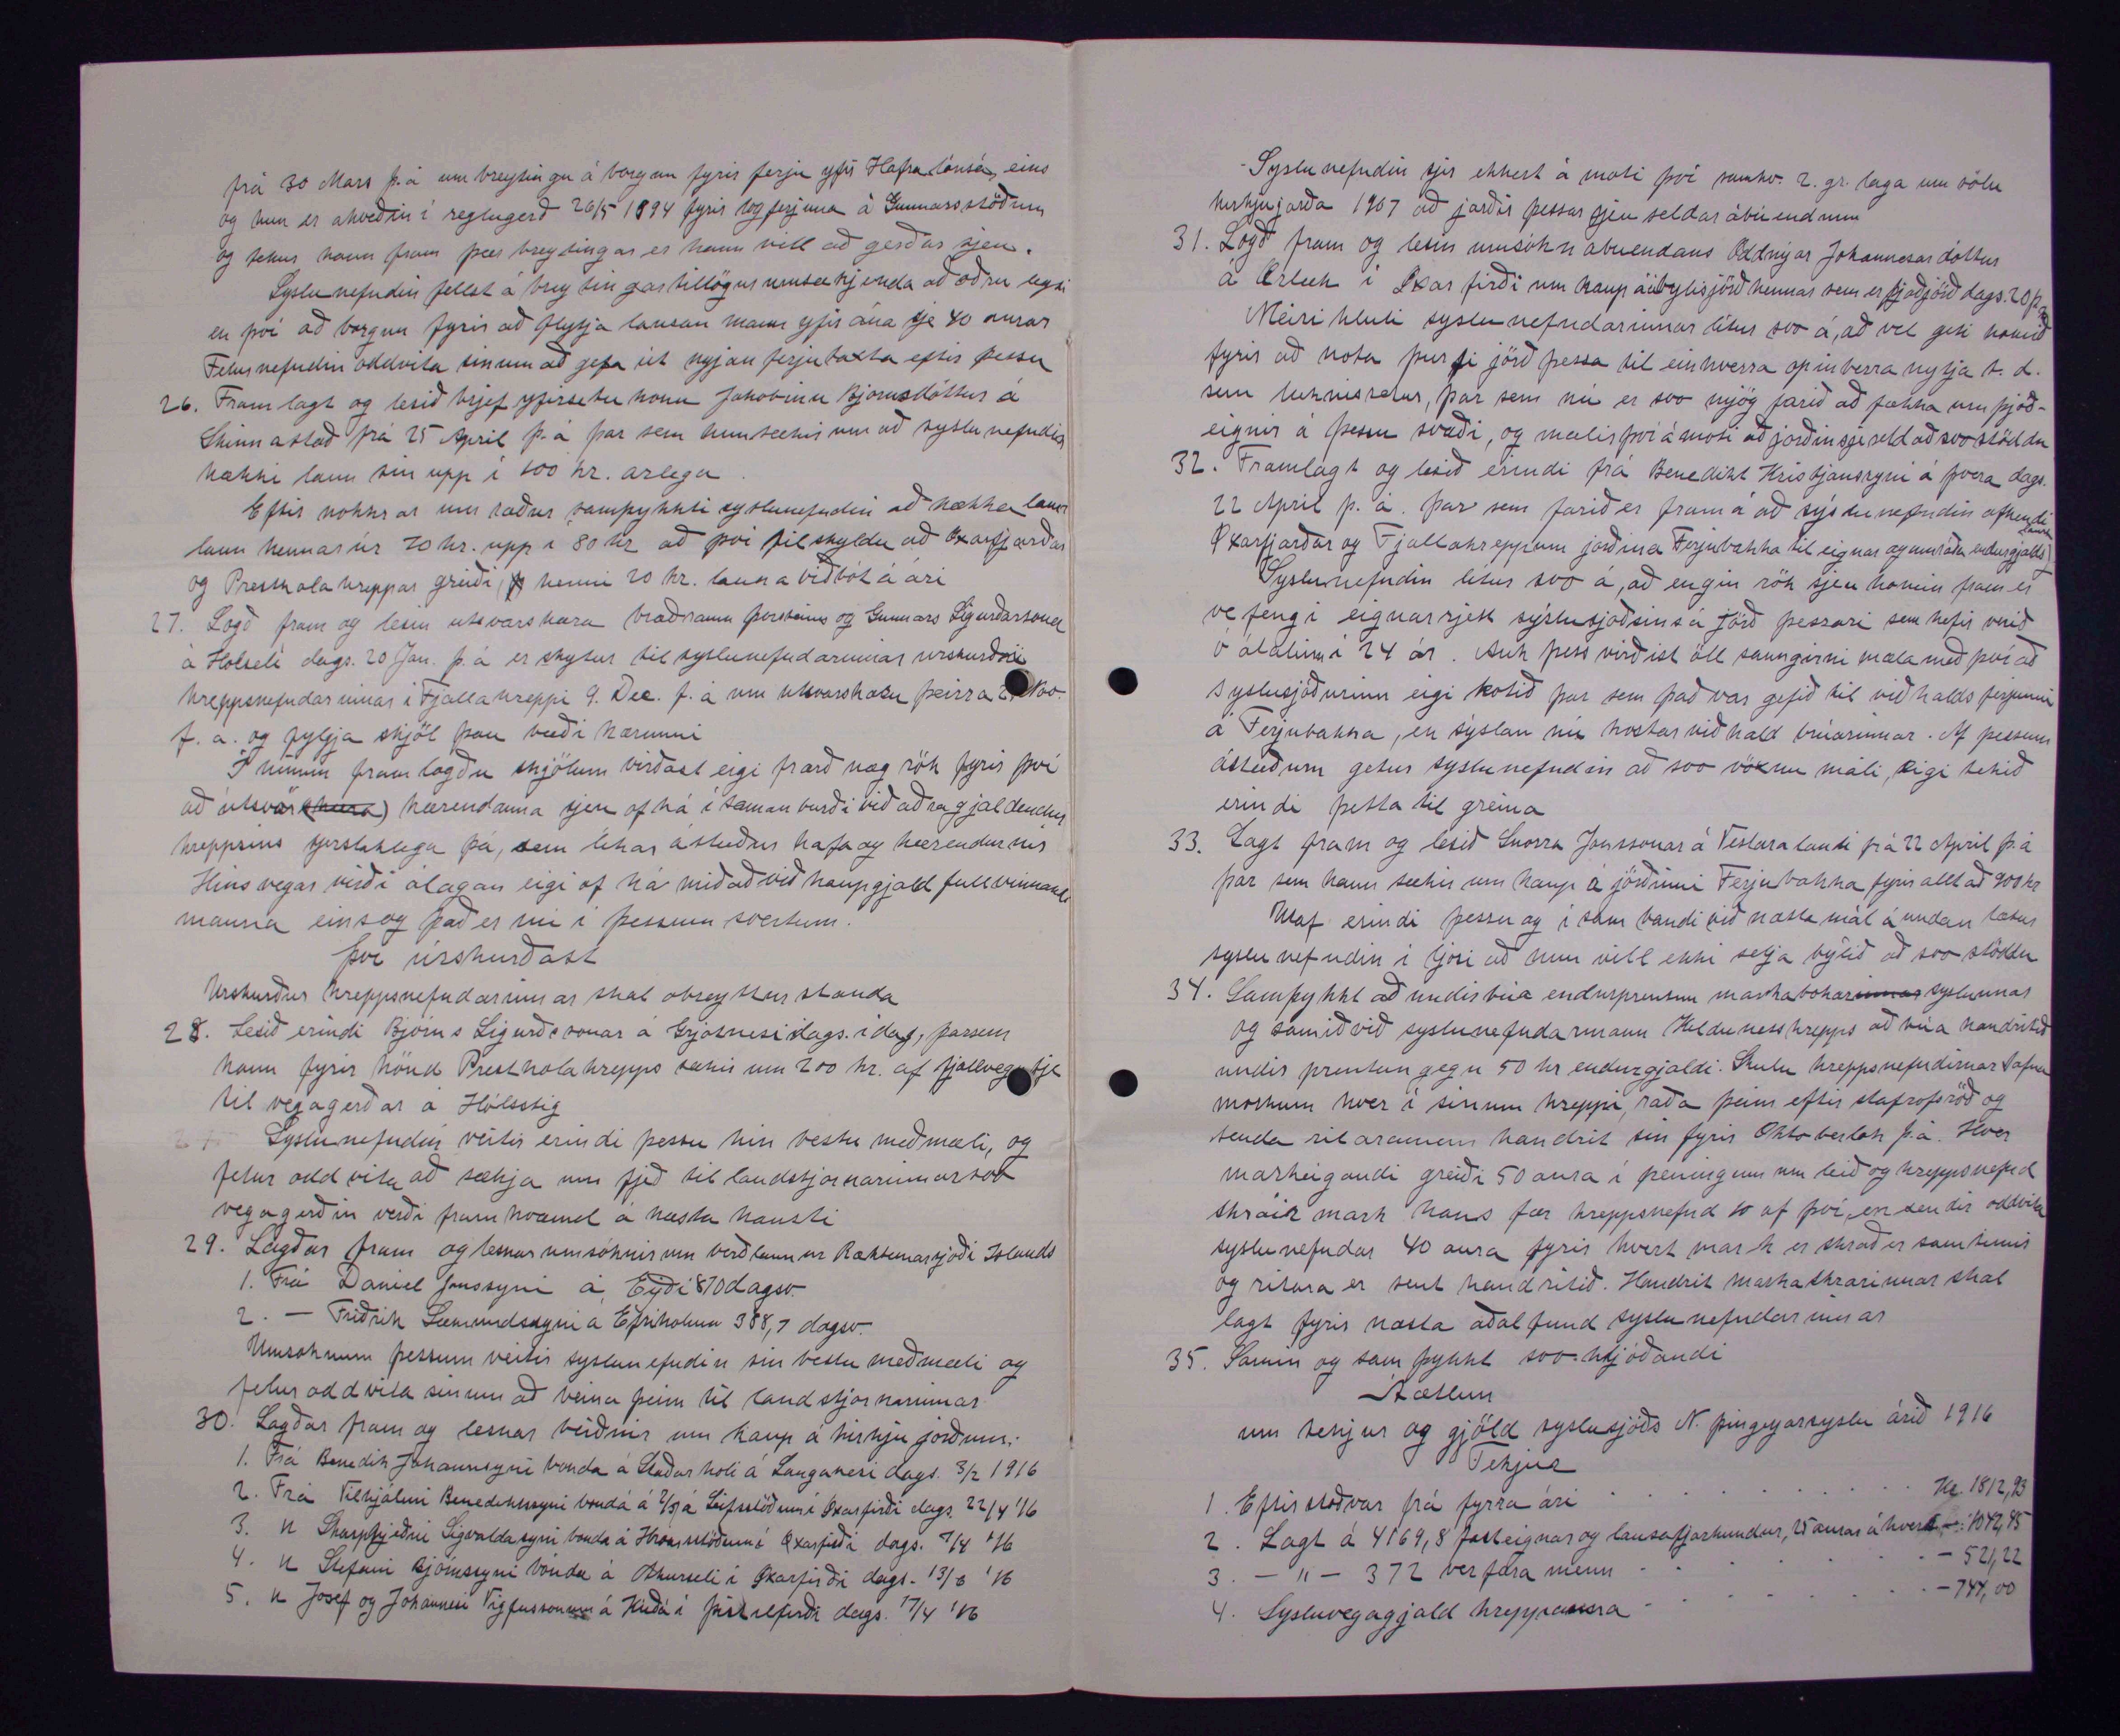 frá 30 Mars þ.á um breytingu á borgun fyrir ferju yfir Hafralónsá, eins
og hun er akveðin i reglugerð 26/5 1894 fyrir lögferjuna á Gunnarsstöðum
og tekur hann fram þær breytingar er hann vill að gerðar sjeu.
Syslunefndin fellst á breytingartillögur umsækjenda að öðru leyti
en því að borgun fyrir að flytja lausan mann yfir ána sje 40 aurar
Felur nefndin oddvita sinum að gefa út nyjan ferjutaxta eftir þessu
26. Fram lagt og lesið brjef yfirsetu konu Jakobinu Bjornsdóttur á
Skinnastað frá 25 April þ.á þar sem hun sækir um að syslunefndin
hækki laun sin upp í 100 kr. arlega.
Eftir nokkrar um ræður samþykkti syslunefndin að hækka laun
laun hennar úr 70 kr. upp i 80 kr að því tilskyldu að Öxarfjarðar
og Presthola hreppar greiði henni 20 kr. launa viðbót á ári
27. Logð fram og lesin utsvarskæra bræðranna Þorsteins og Gunnars Sigurðarsona
á Holseli dags. 20 Jan. þ.á er skytur til syslunefndarinnar urskurði
hreppsnefndarinnar i Fjallahreppi 9. Dec. f.á um utsvarskæru þeirra 2. Nov.
f.a. og fylgja skjöl þau bæði kærunni
Í hinum fram logðu skjölum virðast eigi færð næg rök fyrir því
að útsvör (kæra) kærendanna sjeu of há í samanburði við aðra gjaldendur
hreppsins sjerstaklega þá, sem líkar ástæður hafa og kærendurnir
Hins vegar virði alagan eigi of há miðað við kaupgjald fullvinnandi
manna eins og það er nu i þessum sveitum.
Því úrskurðast
Urskurður hreppsnefndarinnar skal obreyttur standa
28. Lesið erindi Bjorns Sigurðssonar á Grjótnesi dags. i dag, þarsem
hann fyrir hönd Presthola hrepps sækir um 200 kr. af fjallvega fje
til vegagerðar á Hólsstig
Syslunefndin veitir erindi þessu hin bestu meðmæli, og
felur oddvita að sækja um fjeð til landstjornarinnar svo
vegagerðin verði framkvæmd á næsta hausti
29. Lagðar fram og lesnar umsóknir um verðlaun ur Ræktunarsjoði Islands
1. Frá Daniel Jonssyni á Eyði 870 dagsv.
2. — Friðrik Sæmundssyni á Efriholum 388,7 dagsv.
Umsoknum þessum veitir syslunefndin sin bestu meðmæli og
felur oddvita sinum að beina þeim til landstjornarinnar
30. Lagðar fram og lesnar beiðnir um kaup á kirkju jorðum:
1. Frá Benedikt Johannsyni bonda á Staðarholi á Langanesi dags. 3/2 1916
2. Frá Vilhjálmi Benediktssyni bondá á 2/3 á Leifsstöðum í Öxarfirði dags. 22/4 '16
3. " Skarphjeðni Sigvaldasyni bonda á Hroarsstöðum í Öxarfirði dags. 7/4 '16
4. " Stefani Bjornssyni bónda á Akurseli i Öxarfirði dags. 13/3 '16
5. " Josef og Johannesi Vigfussonum á Kúðá i Þistilfirði dags. 17/4 '16
- Syslunefndin sjer ekkert á moti því samkv. 2. gr. laga um sölu
kirkjujarða 1907 að jarðir þessar sjeu seldar ábuendum
31. Logð fram og lesin umsókn abuendans Oddnýar Johannesardóttur
á Ærlæk i Öxarfirði um kaup á ábylisjörð hennar sem er þjoðjörð dags. 20 f.m
Meiri hluti syslunefndarinnar litur svo á, að vel geti komið
fyrir að nota þurfi jörð þessa til einhverra opinberra nytja t.d.
sem læknissetur, þar sem nú er svo mjög farið að fækka um þjóð-
eignir á þessu svæði, og mælir þvi á moti að jorðin sje seld að svo stöddu
32. Framlagt og lesið erindi frá Benedikt Kristjanssyni á Þvera dags.
22 April þ. á. þar sem farið er fram á að sýslunefndin afhendi
Öxarfjarðar og Fjallahreppum jorðina Ferjubakka til eignar og umráða endurgjaldslaust
Syslunefndin litur svo á, að engin rök sjeu komin fram er
vefengi eignarrjett sýslusjoðsins á jörð þessari sem hefir verið
óátalinn i 24 ár. Auk þess virðist öll sanngirni mæla með því að
syslusjóðurinn eigi kotið þar sem það var gefið til viðhalds ferjunni
á Ferjubakka, en sýslan nú kostar viðhald brúarinnar. Af þessum
ástæðum getur syslunefndin að svo vöxnu máli, eigi tekið
erindi þetta til greina
33. Lagt fram og lesið Snorra Jonssonar á Vestaralandi frá 22 April þ.á
þar sem hann sækir um kaup á jörðinni Ferjubakka fyrir allt að 900 kr
Utaf erindi þessu og i sambandi við næsta mál á undan lætur
syslunefndin i ljosi að hun vill ekki selja býlið að svo stöddu
34. Samþykkt að undirbúa endurprentun markabokarinnar syslunnar
og samið við syslunefndarmann Kelduness hrepps að búa handritið
undir prentun gegn 50 kr endurgjaldi. Skulu hreppsnefndirnar safna
morkum hver i sinum hreppi, raða þeim eftir stafrofsröð og
senda ritaranum handrit sin fyrir Oktoberlok þ.á. Hver
markeigandi greiði 50 aura i peningum um leið og hreppsnefnd
skráir mark hans fær hreppsnefnd 10 af því, en sendir oddvita
syslunefndar 40 aura fyrir hvert mark er skrað er samtimis
og ritara er sent handritið. Handrit markaskrarinnar skal
lagt fyrir næsta aðalfund syslunefndarinnar
35. Samin og samþykkt svo hljóðandi
Áætlun
um tekjur og gjöld syslusjóðs N. Þingeyarsyslu árið 1916
Tekjur
1. Eftirstöðvar frá fyrra ári . . . . . Kr. 1812,93
2. Lagt á 4169,8 fasteignar og lausafjarhundur, 25 aurar á hvert - 1042,45
3. — " — 372 verkfæra menn . . . . - 521,22
4. Sysluvegagjald hreppanna . . . . - 744,00